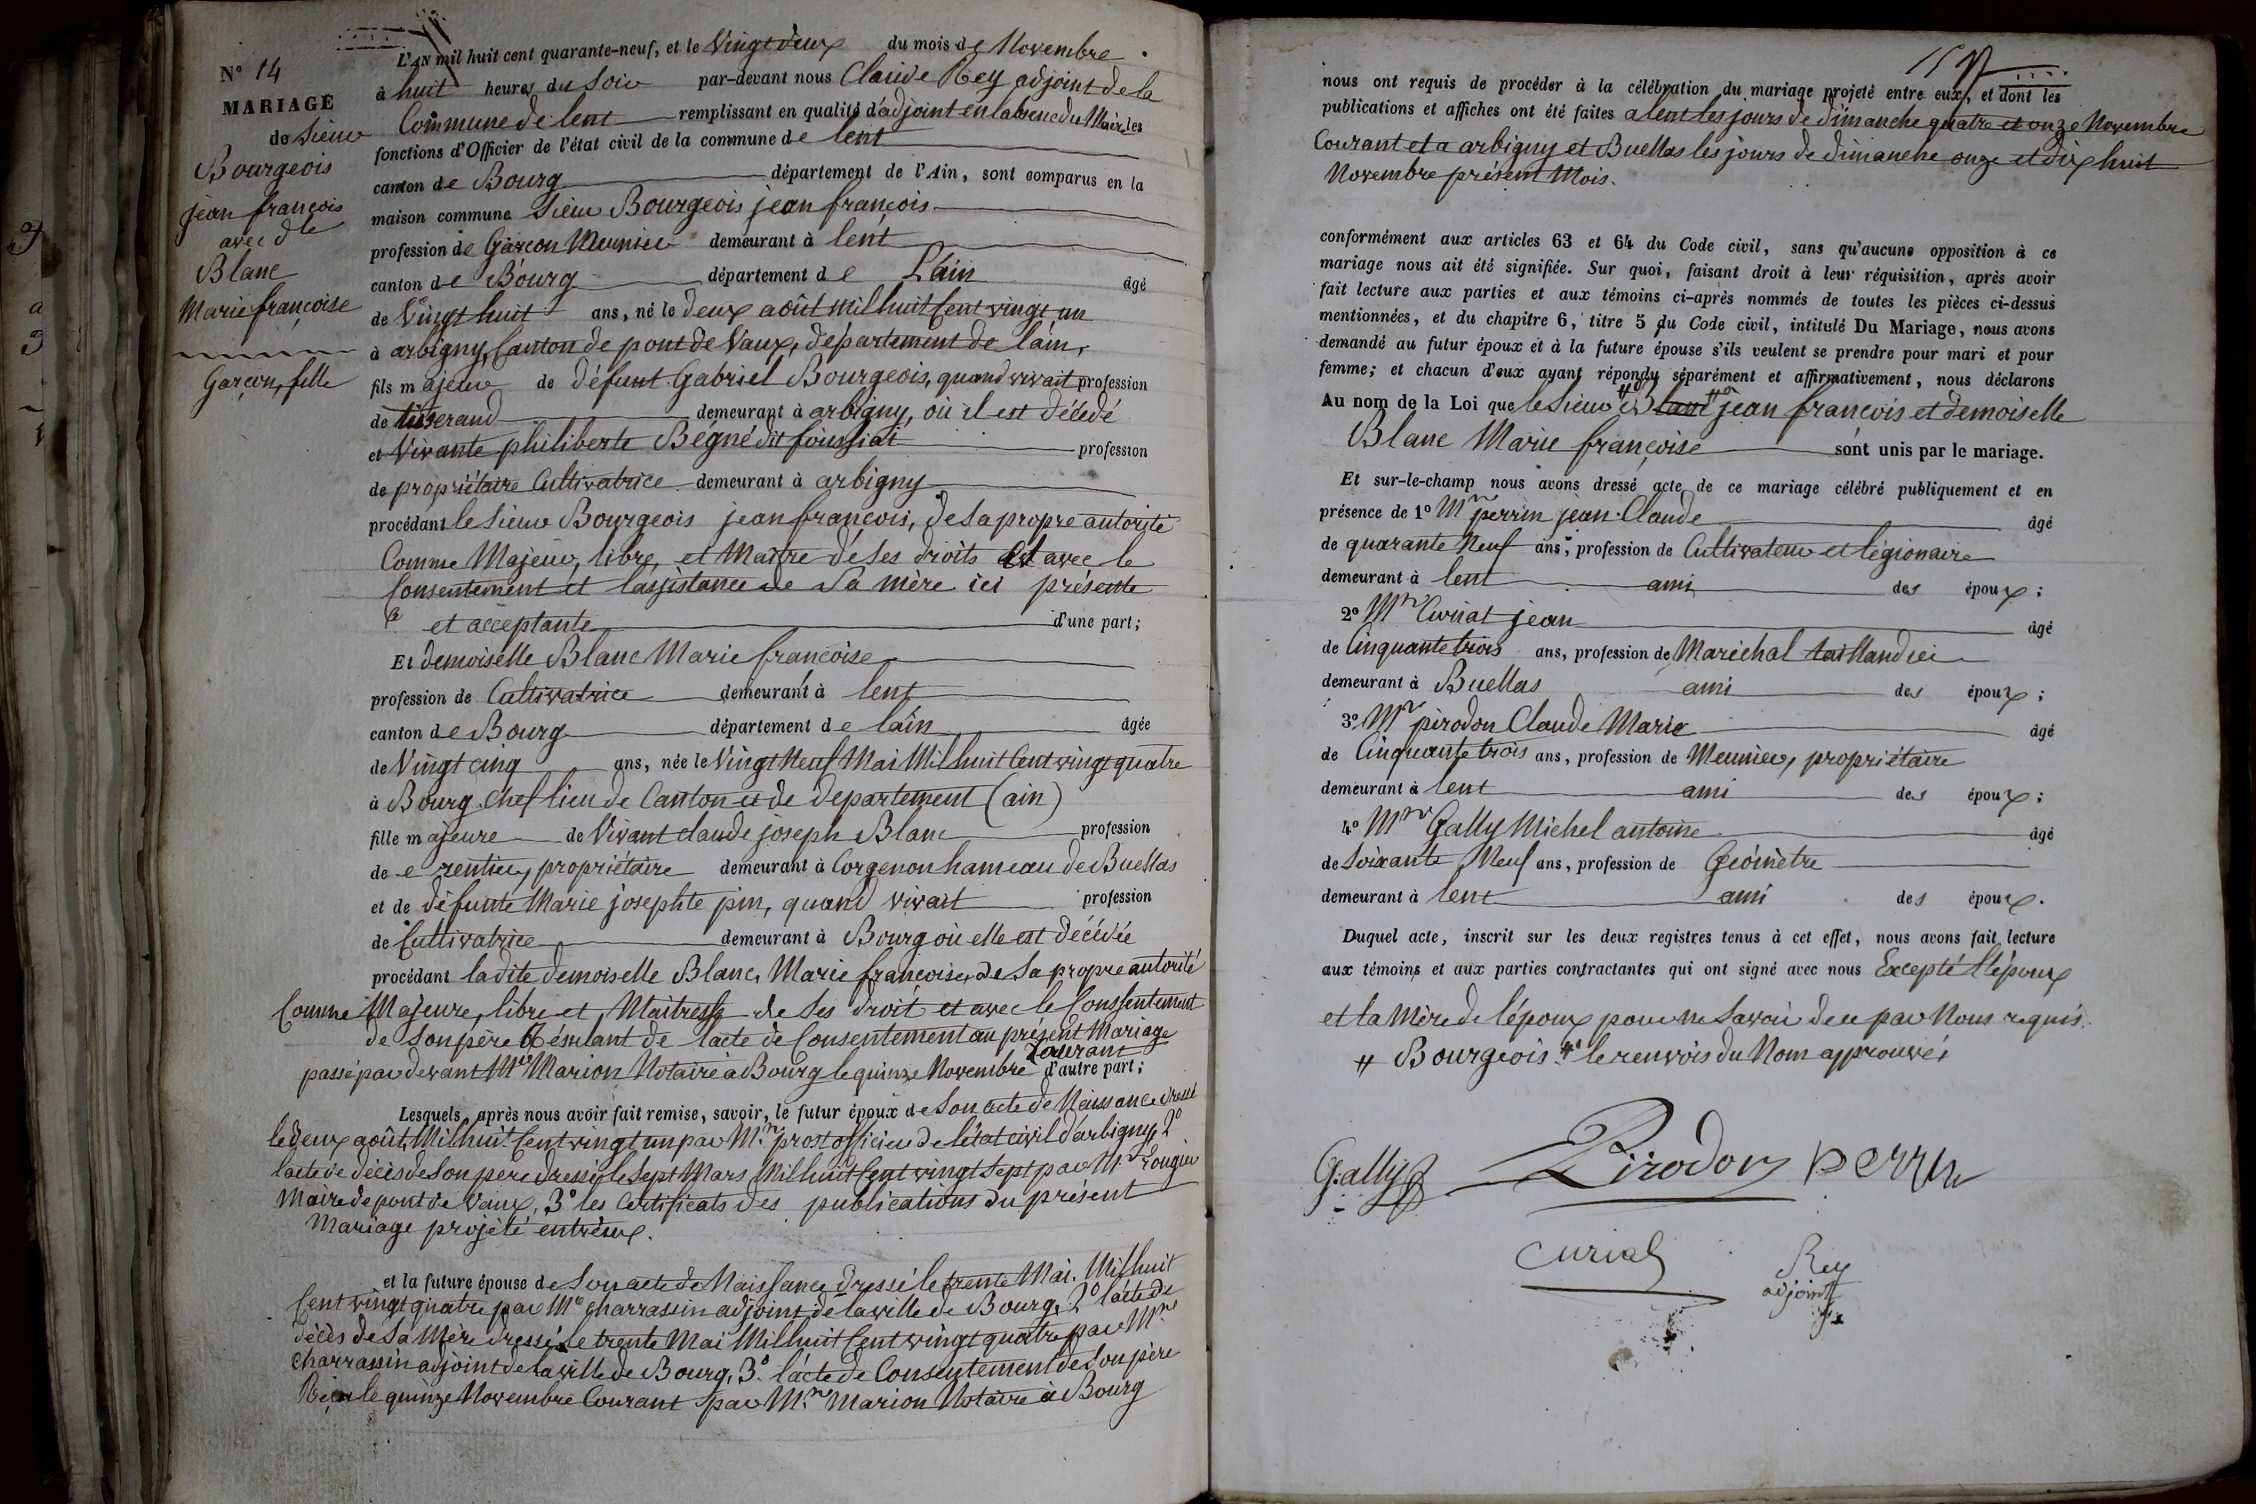 N° 14
MARIAGE
de Sieur
Bourgeois
jean françois
avec dlle
Blanc
Marie françoise
Garçon, fille
L'AN mil huit cent quarante-neuf, et le Vingt deux du mois de Novembre
à huit heures du Soir par-devant nous Claude Rey adjoint de la
Commune de lent remplissant en qualité d'adjoint en labsence du Maire les
fonctions d'Officier de l'état civil de la commune de lent
canton de Bourg département de l'Ain, sont comparus en la
maison commune Sieur Bourgeois jean françois
profession de Garçon Meunier demeurant à lent
canton de Bourg département de L'ain âgé
de Vingt huit ans, né le deux août mil huit Cent vingt un
à arbigny, Canton de pont de Vaux, département de l'ain,
fils majeur de défunt Gabriel Bourgeois, quand vivait profession
de tisserand demeurant à arbigny, où il est décédé
et Vivante philiberte Bégné dit
profession
de propriétaire Cultivatrice demeurant à arbigny
procédant le Sieur Bourgeois jean françois, de sa propre autorité
Comme Majeur, libre, et Maître de ses droits et avec le
Consentement et lassistance de Sa mère ici présente
et acceptante d'une part;
Et demoiselle Blanc Marie françoise
profession de Cultivatrice demeurant à lent
canton de Bourg département de lain âgée
de Vingt cinq ans, née le Vingt Neuf Mai Mil huit Cent vingt quatre
à Bourg Chef lieu de Canton et de département (ain)
fille majeure de Vivant claude joseph Blanc profession
de rentier, propriétaire demeurant à Corgenon hameau de Buellas
et de défunte Marie josephte pin, quand vivait profession
de Cultivatrice demeurant à Bourg où elle est décédée
procédant ladite demoiselle Blanc, Marie françoise, de Sa propre autorité
Comme Majeure, libre et Maitresse de Ses droit et avec le Consentement
de Son père Résulant de lacte de Consentement au présent Mariage
passé par devant Me Marion Notaire à Bourg le quinze Novembre Courant d'autre part;
Lesquels, après nous avoir fait remise, savoir, le futur époux de Son acte de Naissance dressé
le deux août Mil huit Cent vingt un par Mr prost officier de l'état civil d'arbigny, 2°
lacte de décès de Son père dressé le Sept Mars Mil huit Cent vingt Sept par Mr
Maire de pont de Vaux, 3° les Certificats des publications du présent
Mariage projeté entr'eux.
et la future épouse de Son acte de Naissance dressé le trente Mai Mil huit
Cent vingt quatre par Mr charrassin adjoint de la ville de Bourg, 2° l'acte de
décès de Sa Mère dressé le trente Mai Mil huit Cent vingt quatre par Mr
Charrassin adjoint de la ville de Bourg, 3° l'acte de Consentement de Son père
Reçu le quinze Novembre Courant par Mr Marion Notaire à Bourg
nous ont requis de procéder à la célébration du mariage projeté entre eux, et dont les
publications et affiches ont été faites a lent les jours de dimanche quatre et onze Novembre
Courant et a arbigny et Buellas les jours de dimanche onze et dix huit
Novembre présent Mois.
conformément aux articles 63 et 64 du Code civil, sans qu'aucune opposition à ce
mariage nous ait été signifiée. Sur quoi, faisant droit à leur réquisition, après avoir
fait lecture aux parties et aux témoins ci-après nommés de toutes les pièces ci-dessus
mentionnées, et du chapitre 6, titre 5 du Code civil, intitulé Du Mariage, nous avons
demandé au futur époux et à la future épouse s'ils veulent se prendre pour mari et pour
femme; et chacun d'eux ayant répondu séparément et affirmativement, nous déclarons
Au nom de la Loi que le Sieur Blanc jean françois et demoiselle
Blanc Marie françoise sont unis par le mariage.
Et sur-le-champ nous avons dressé acte de ce mariage célébré publiquement et en
présence de 1° Mr perrin jean Claude âgé
de quarante Neuf ans, profession de Cultivateur et légionaire
demeurant à lent ami des époux;
2° Mr Curial jean âgé
de Cinquante trois ans, profession de Maréchal taillandier
demeurant à Buellas ami des époux;
3° Mr pirodon Claude Marie âgé
de Cinquante trois ans, profession de Meunier, propriétaire
demeurant à lent ami des époux;
4° Mr Gally Michel antoine âgé
de Soixante Neuf ans, profession de Géomètre
demeurant à lent ami des époux.
Duquel acte, inscrit sur les deux registres tenus à cet effet, nous avons fait lecture
aux témoins et aux parties contractantes qui ont signé avec nous Excepté l'époux
et la Mère de l'époux pour ne Savoir de ce par Nous requis.
# Bourgeois # le renvois du Nom approuvé
Gally Pirodon perrin
Curial Rey
adjoint